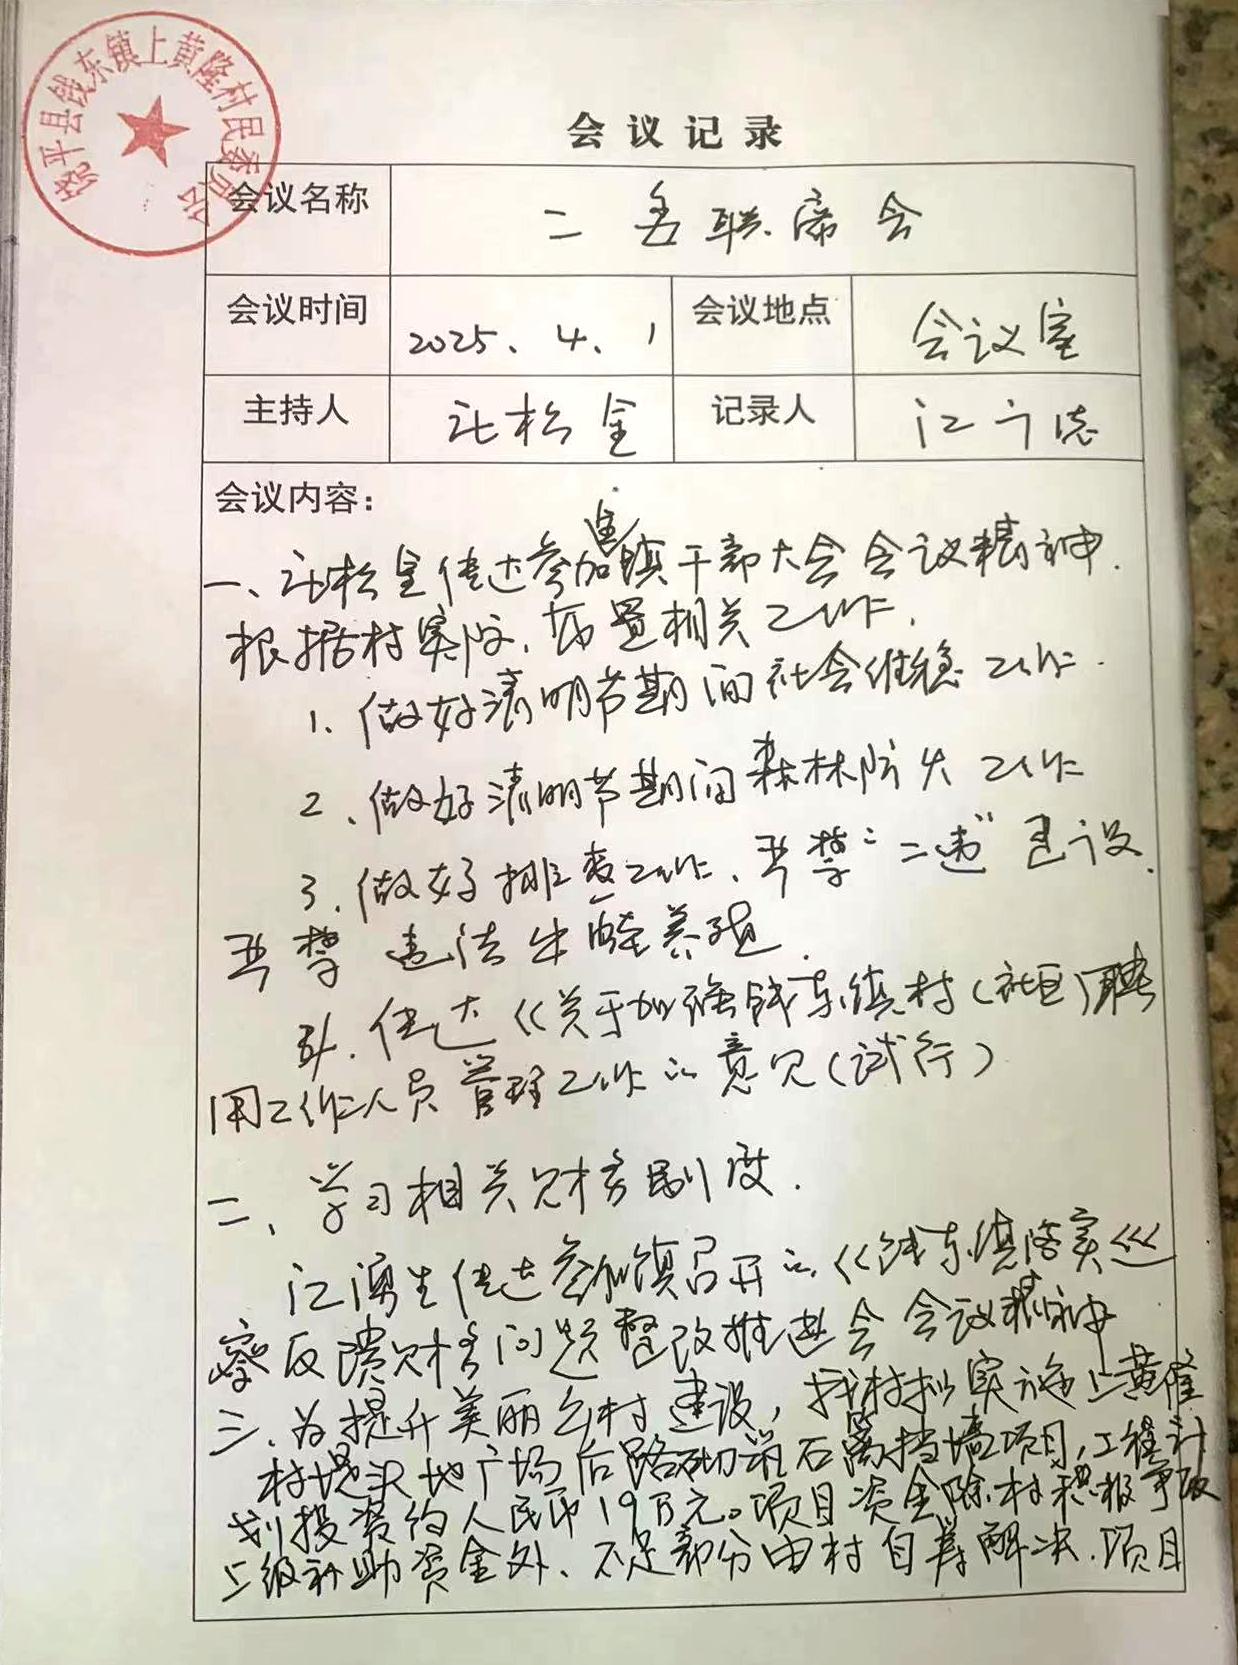 饶平县钱东镇上黄隆村民委员会
会议记录
会议名称
二委联席会
会议时间
2025、4、1
会议地点
会议室
主持人
松金
记录人
江
会议内容：
一、松金传达参加镇干部大会会议精神.
根据村实际,布置相关工作.
1、做好清明节期间社会维稳工作.
2、做好清明节期间森林防火工作
3、做好排查工作、严禁“二违”建设.
严禁违法生蚝养殖.
4、传达《关于加强钱东镇村(社区)聘
用工作人员管理工作的意见(试行)
二、学习相关财务制度.
江勇生传达参加镇召开的《钱东镇落实巡
察反馈财务问题整改推进会会议精神
三、为提升美丽乡村建设,我村拟实施上黄隆
村堤地广场后路砌筑石篱挡墙项目,工程计
划投资约人民币19万元。项目资金除村积极争取
上级补助资金外、不足部分由村自筹解决.项目